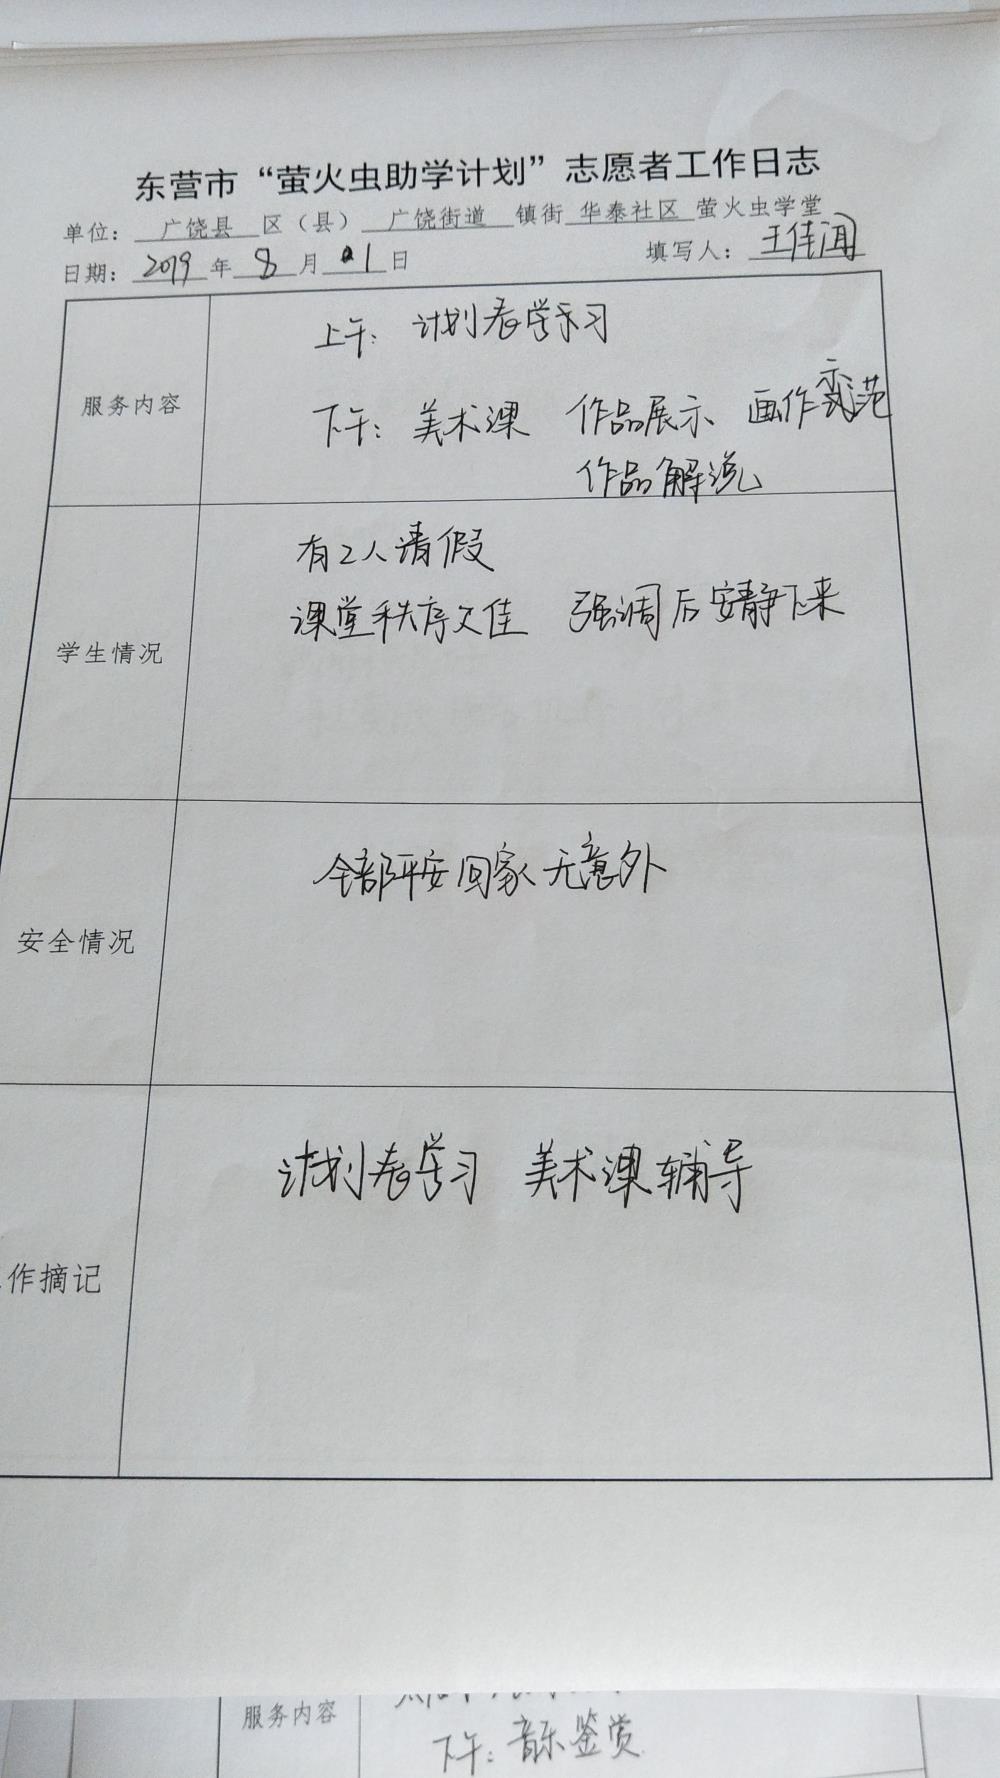 东营市“萤火虫助学计划”志愿者工作日志
单位：广饶县 区（县） 广饶街道 镇街 华泰社区 萤火虫学堂
日期：2019年8月01日 填写人：王佳闻
服务内容
上午：计划表学习
下午：美术课 作品展示 画作示范
作品解说
学生情况
有2人请假
课堂秩序欠佳 强调后安静下来
安全情况
全部平安回家 无意外
作摘记
计划表学习 美术课辅导
服务内容
下午：音乐鉴赏